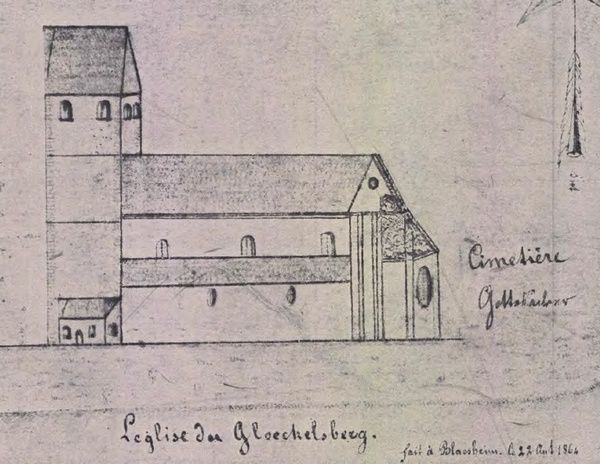 Cimetière
Gottesacker
L'eglise du Gloeckelsberg.
fait à Blaesheim. le 22 Aut 1864